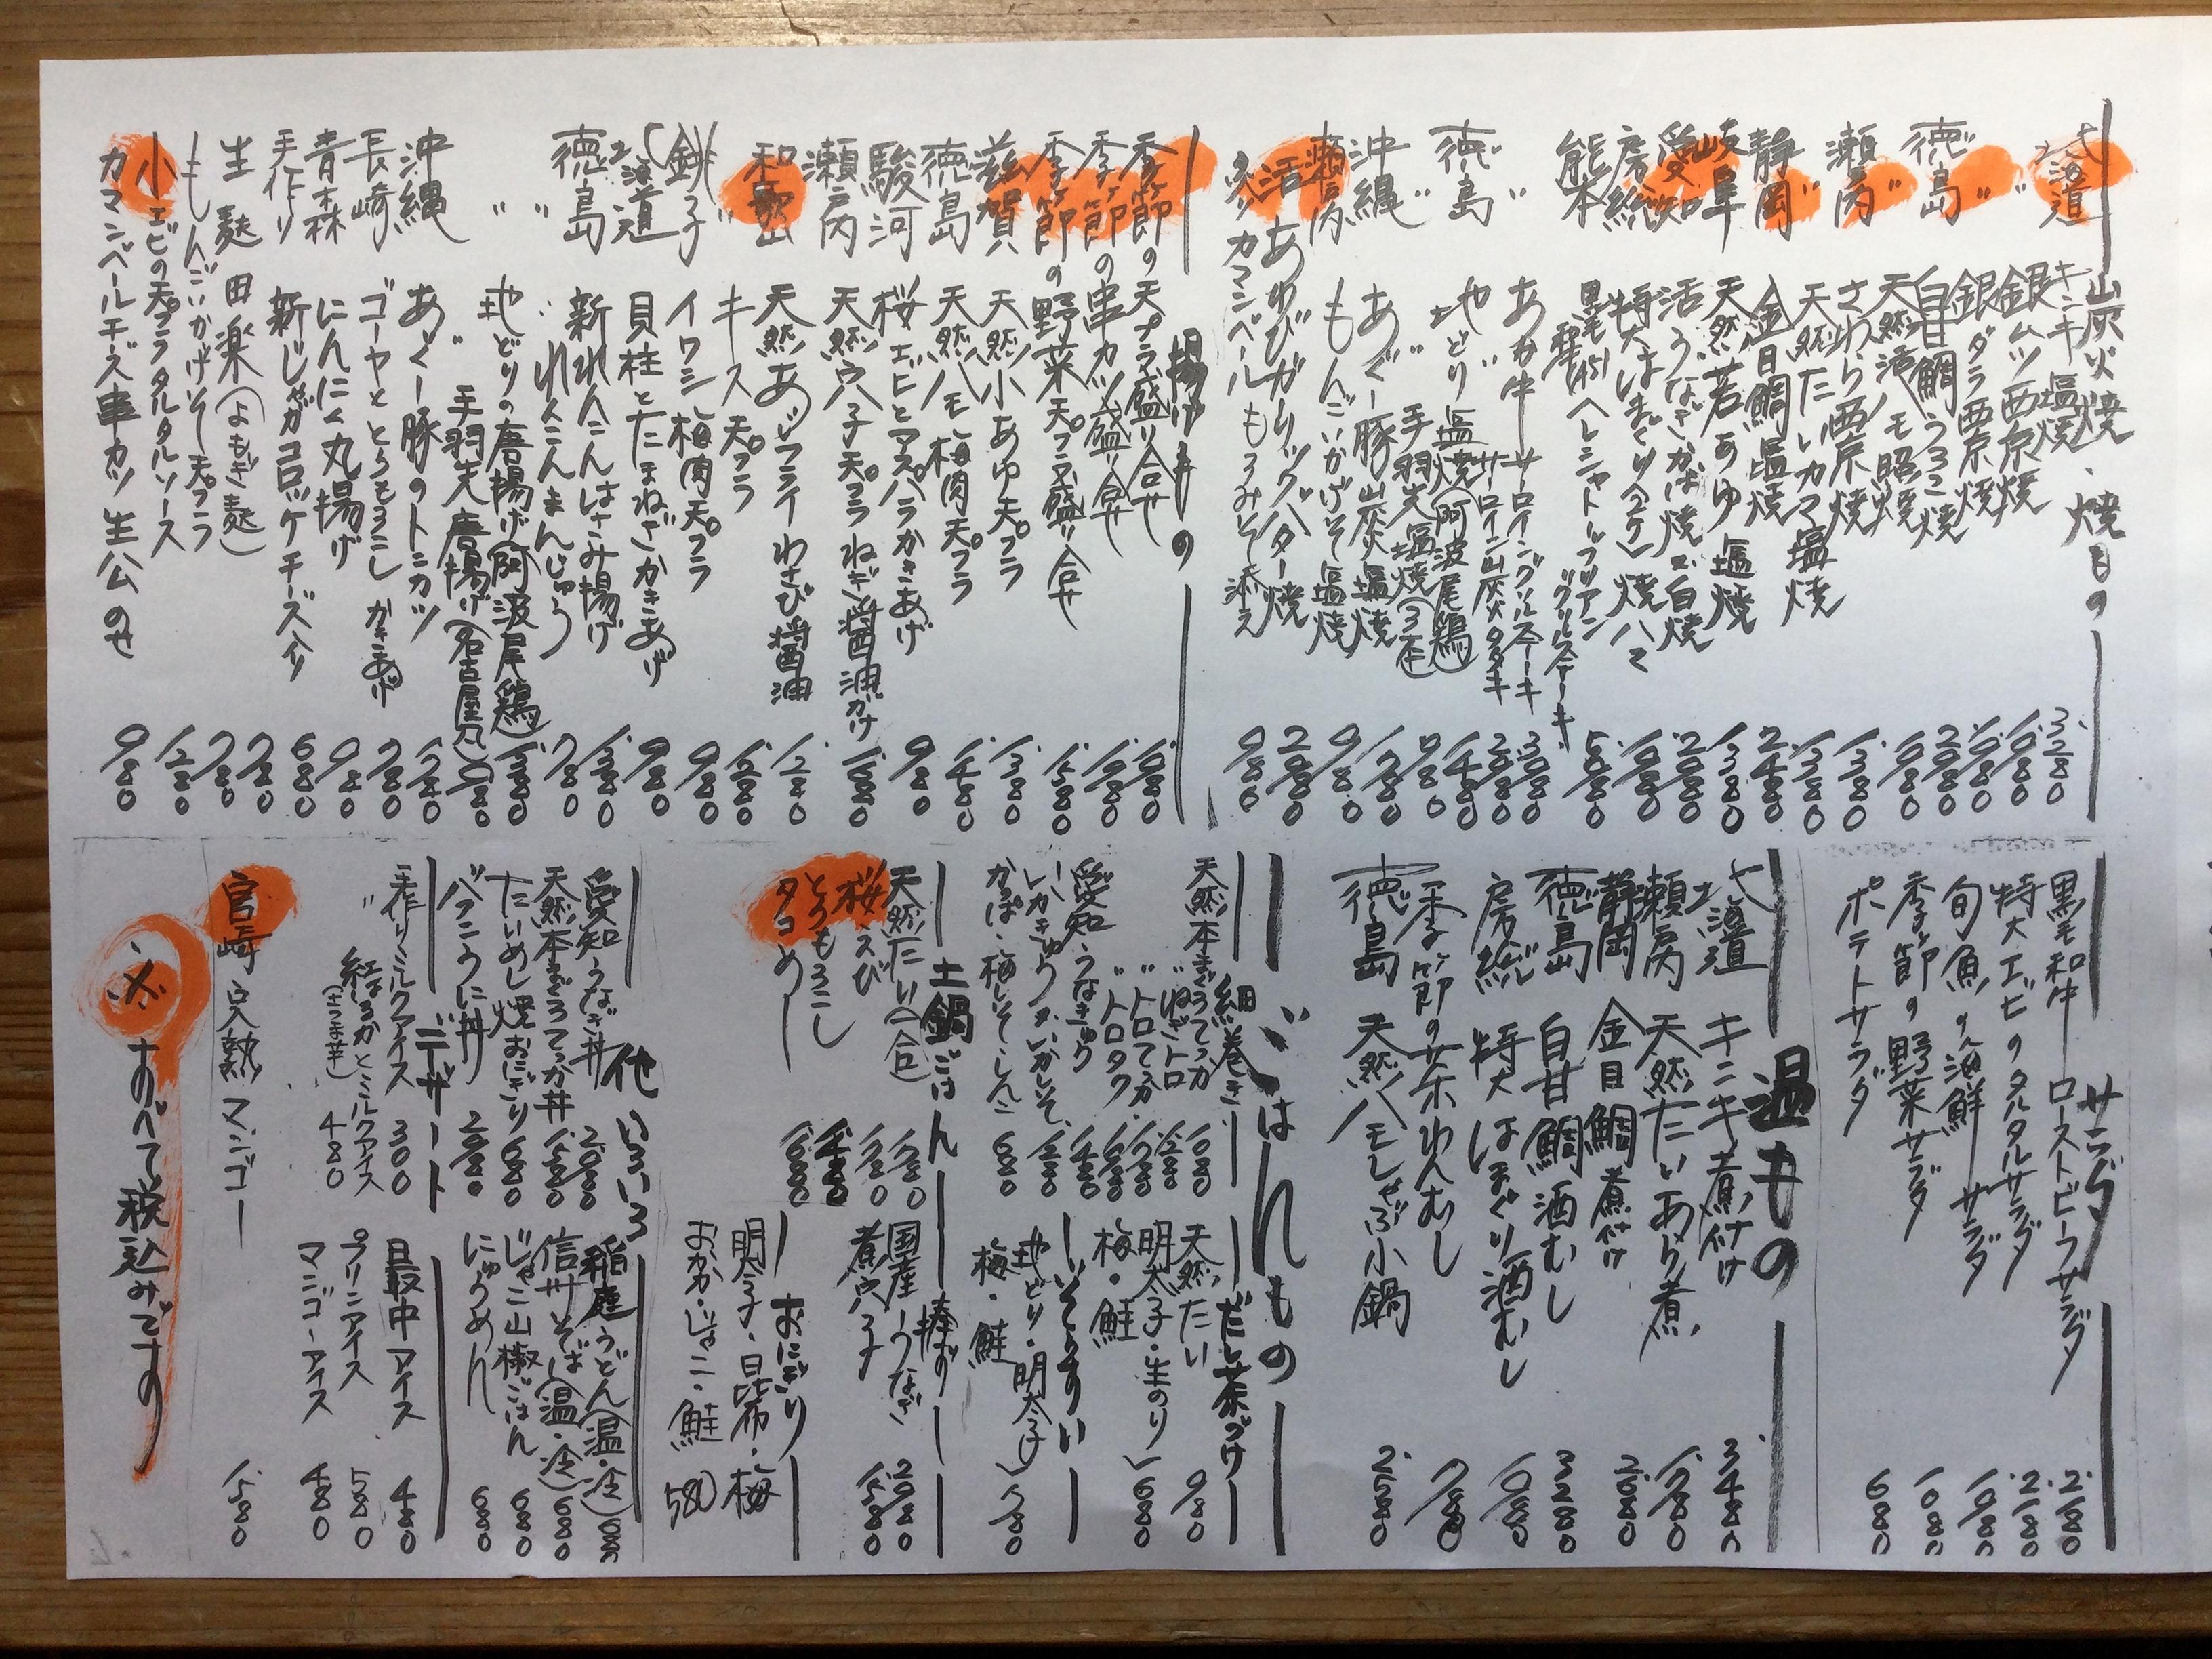 炭火焼、焼もの
北海道 キンキ塩焼 3.280
〃 銀ムツ西京焼 1.080
〃 銀ダラ西京焼 1.080
徳島 白甘鯛うろこ焼 2.080
〃 天然活ハモ照焼 1.080
瀬戸内 さわら西京焼 1.380
〃 天然たいカマ塩焼 1.380
静岡 金目鯛塩焼 2.480
岐阜 天然若あゆ塩焼 1.380
愛知 活うなぎかば焼 or 白焼 2.080
房総 特大はまぐり(2ケ)焼ハマ 1.080
熊本 黒毛和牛(A5)ヘレシャトーブリアン グリルステーキ 5.880
〃 あか牛サーロイングリルステーキ 3.080
〃 サーロイン炭火タタキ 2.880
徳島 地どり塩焼(阿波尾鶏) 1.480
〃 手羽先塩焼(3本) 980
沖縄 あぐー豚炭火塩焼 1.780
瀬戸内 もんごいかげそ塩焼 980
活あゆびガーリックバター焼 2.080
カマンベールもろみそ添え 980
揚げもの
季節の天プラ盛り合せ 1.080
季節の串カツ盛り合せ 1.080
季節の野菜天プラ盛り合せ 1.580
滋賀 天然小あゆ天プラ 1.380
徳島 天然ハモ梅肉天プラ 1.480
駿河 桜エビとアスパラかきあげ 980
瀬戸内 天然穴子天プラねぎ醤油がけ 1.680
和歌山 天然あじフライわさび醤油 1.280
〃 キス天プラ 1.280
銚子 イワシ梅肉天プラ 980
北海道 貝柱とたまねぎかきあげ 980
徳島 新れんこんはさみ揚げ 1.380
〃 れんこんまんじゅう 780
〃 地どりの唐揚げ(阿波尾鶏) 1.380
〃 手羽先唐揚げ(名古屋風) 980
沖縄 あぐー豚のトンカツ 1.780
長崎 ゴーヤととうもろこしかきあげ 780
青森 にんにく丸揚げ 980
手作り 新じゃがコロッケチーズ入り 680
生麩田楽(よもぎ麩) 780
もんごいかげそ天プラ 780
小エビの天プラタルタルソース 1.280
カマンベールチーズ串カツ生公のせ 980
サラダ
黒毛和牛ローストビーフサラダ 2.180
特大エビのタルタルサラダ 2.180
旬魚の海鮮サラダ 1.080
季節の野菜サラダ 1.080
ポテトサラダ 680
温もの
北海道 キンキ煮付け 3.480
瀬戸内 天然たいあら煮 1.780
静岡 金目鯛煮付け 2.680
徳島 白甘鯛酒むし 3.280
房総 特大はまぐり酒むし 1.080
季節の茶わんむし 780
徳島 天然ハモしゃぶ小鍋 2.580
ごはんもの
細巻き
天然本まぐろてっか 1.080
〃 ねぎトロ 1.280
〃 トロてっか 1.780
〃 トロタク 1.680
愛知うなきゅう 1.480
いかきゅう or いかしそ 1.280
かっぱ・梅しそ・しんこ 680
だし茶づけ
天然たい 980
明太子・生のり
梅・鮭 680
いそうすい
地どり・明太子
梅・鮭 780
土鍋ごはん
天然たい(一合) 1.780
桜えび 1.780
とうもろこし 1.480
タコめし 1.680
棒ずし
国産うなぎ 2.080
煮穴子 1.580
おにぎり
明太子・昆布・梅
おかか・じゃこ・鮭 580
他いろいろ
愛知うなぎ丼 2.080
天然本まぐろてっか丼 1.580
たいめし焼おにぎり 680
バフンうに丼 2.980
稲庭うどん(温・冷) 680
信州そば(温・冷) 680
じゃこ山椒ごはん 680
にゅうめん 680
デザート
手作りミルクアイス 300
〃 紅はるかとミルクアイス(さつま芋) 480
最中アイス 480
プリンアイス 580
マンゴーアイス 480
宮崎完熟マンゴー 1.580
※すべて税込みです